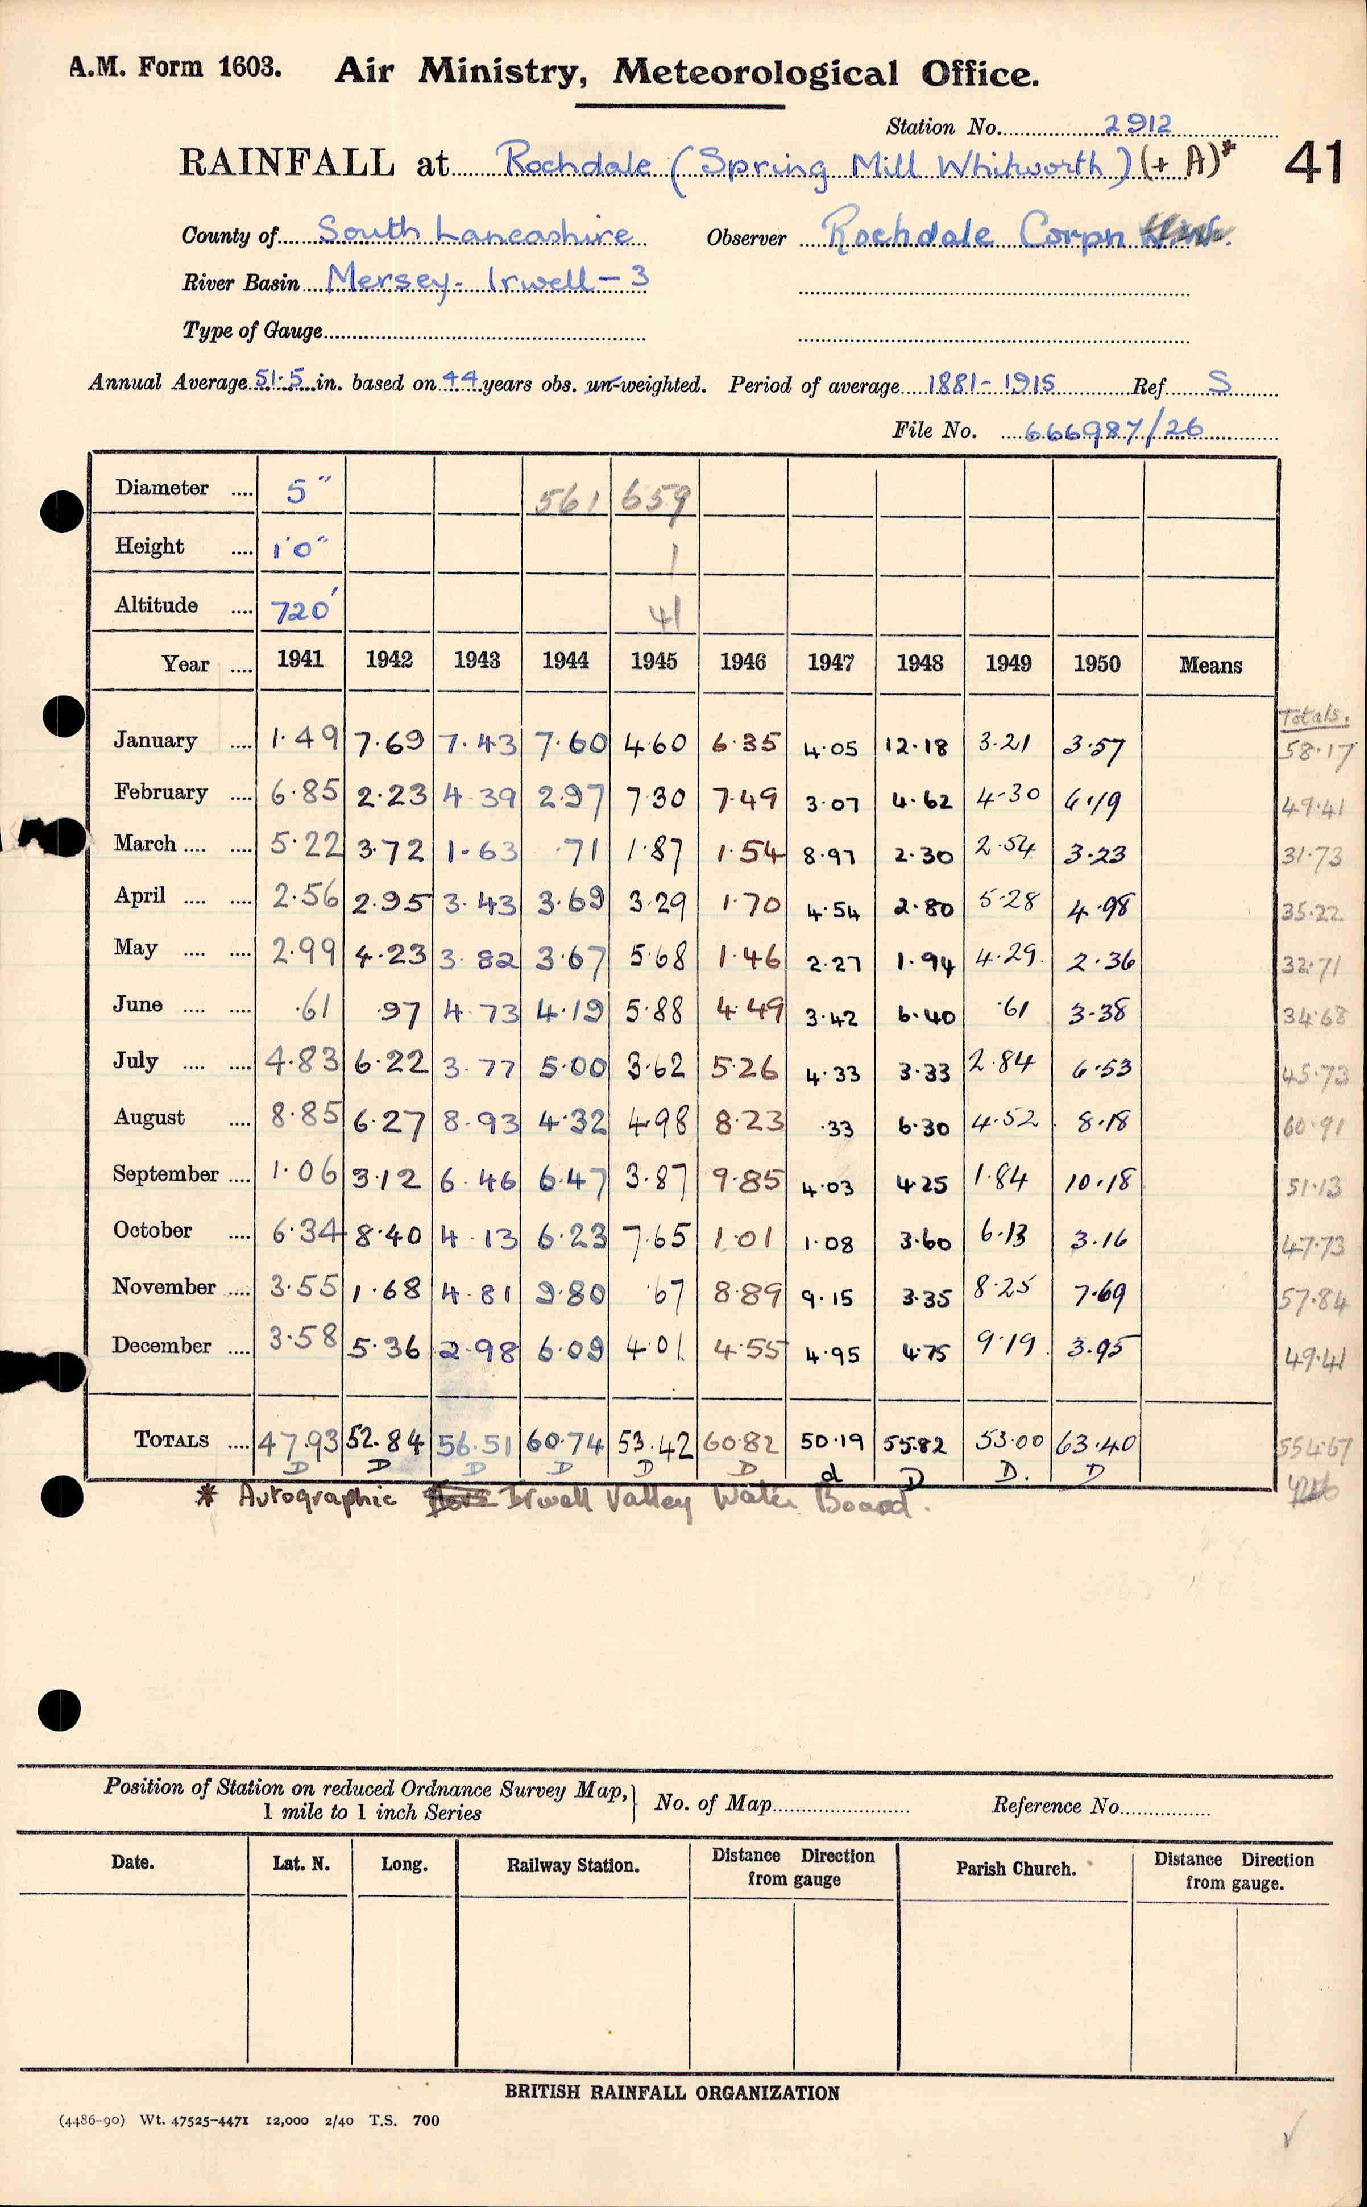 A.M. Form 1603. Air Ministry, Meteorological Office.
Station No. 2912
RAINFALL at Rochdale (Spring Mill Whitworth) (+ A)* 41
County of South Lancashire Observer Rochdale Corpn
River Basin Mersey- Irwell - 3
Type of Gauge
Annual Average 51.5 in. based on 44 years obs. un-weighted. Period of average 1881-1915 Ref S
File No. 666987/26
Diameter .... 5" 561 659
Height .... 1'0" 1
Altitude .... 720' 41
Year .... 1941 1942 1943 1944 1945 1946 1947 1948 1949 1950 Means
Totals.
January .... 1.49 7.69 7.43 7.60 4.60 6.35 4.05 12.18 3.21 3.57 58.17
February .... 6.85 2.23 4.39 2.97 7.30 7.49 3.07 4.62 4.30 6.19 49.41
March .... .... 5.22 3.72 1.63 .71 1.87 1.54 8.97 2.30 2.54 3.23 31.73
April .... .... 2.56 2.95 3.43 3.69 3.29 1.70 4.54 2.80 5.28 4.98 35.22
May .... .... 2.99 4.23 3.82 3.67 5.68 1.46 2.27 1.94 4.29 2.36 32.71
June .... .... .61 .97 4.73 4.19 5.88 4.49 3.42 6.40 .61 3.38 34.68
July .... .... 4.83 6.22 3.77 5.00 3.62 5.26 4.33 3.33 2.84 6.53 45.73
August .... 8.85 6.27 8.93 4.32 4.98 8.23 .33 6.30 4.52 8.18 60.91
September .... 1.06 3.12 6.46 6.47 3.87 9.85 4.03 4.25 1.84 10.18 51.13
October .... 6.34 8.40 4.13 6.23 7.65 1.01 1.08 3.60 6.13 3.16 47.73
November .... 3.55 1.68 4.81 9.80 .67 8.89 9.15 3.35 8.25 7.69 57.84
December .... 3.58 5.36 2.98 6.09 4.01 4.55 4.95 4.75 9.19 3.95 49.41
TOTALS .... 47.93 52.84 56.51 60.74 53.42 60.82 50.19 55.82 53.00 63.40 554.67
D D D D D D d D D. D
* Autographic Irwell Valley Water Board.
Position of Station on reduced Ordnance Survey Map, 1 mile to 1 inch Series } No. of Map Reference No.
Date. Lat. N. Long. Railway Station. Distance Direction from gauge Parish Church. Distance Direction from gauge.
BRITISH RAINFALL ORGANIZATION
(4486-90) Wt. 47525-4471 12,000 2/40 T.S. 700